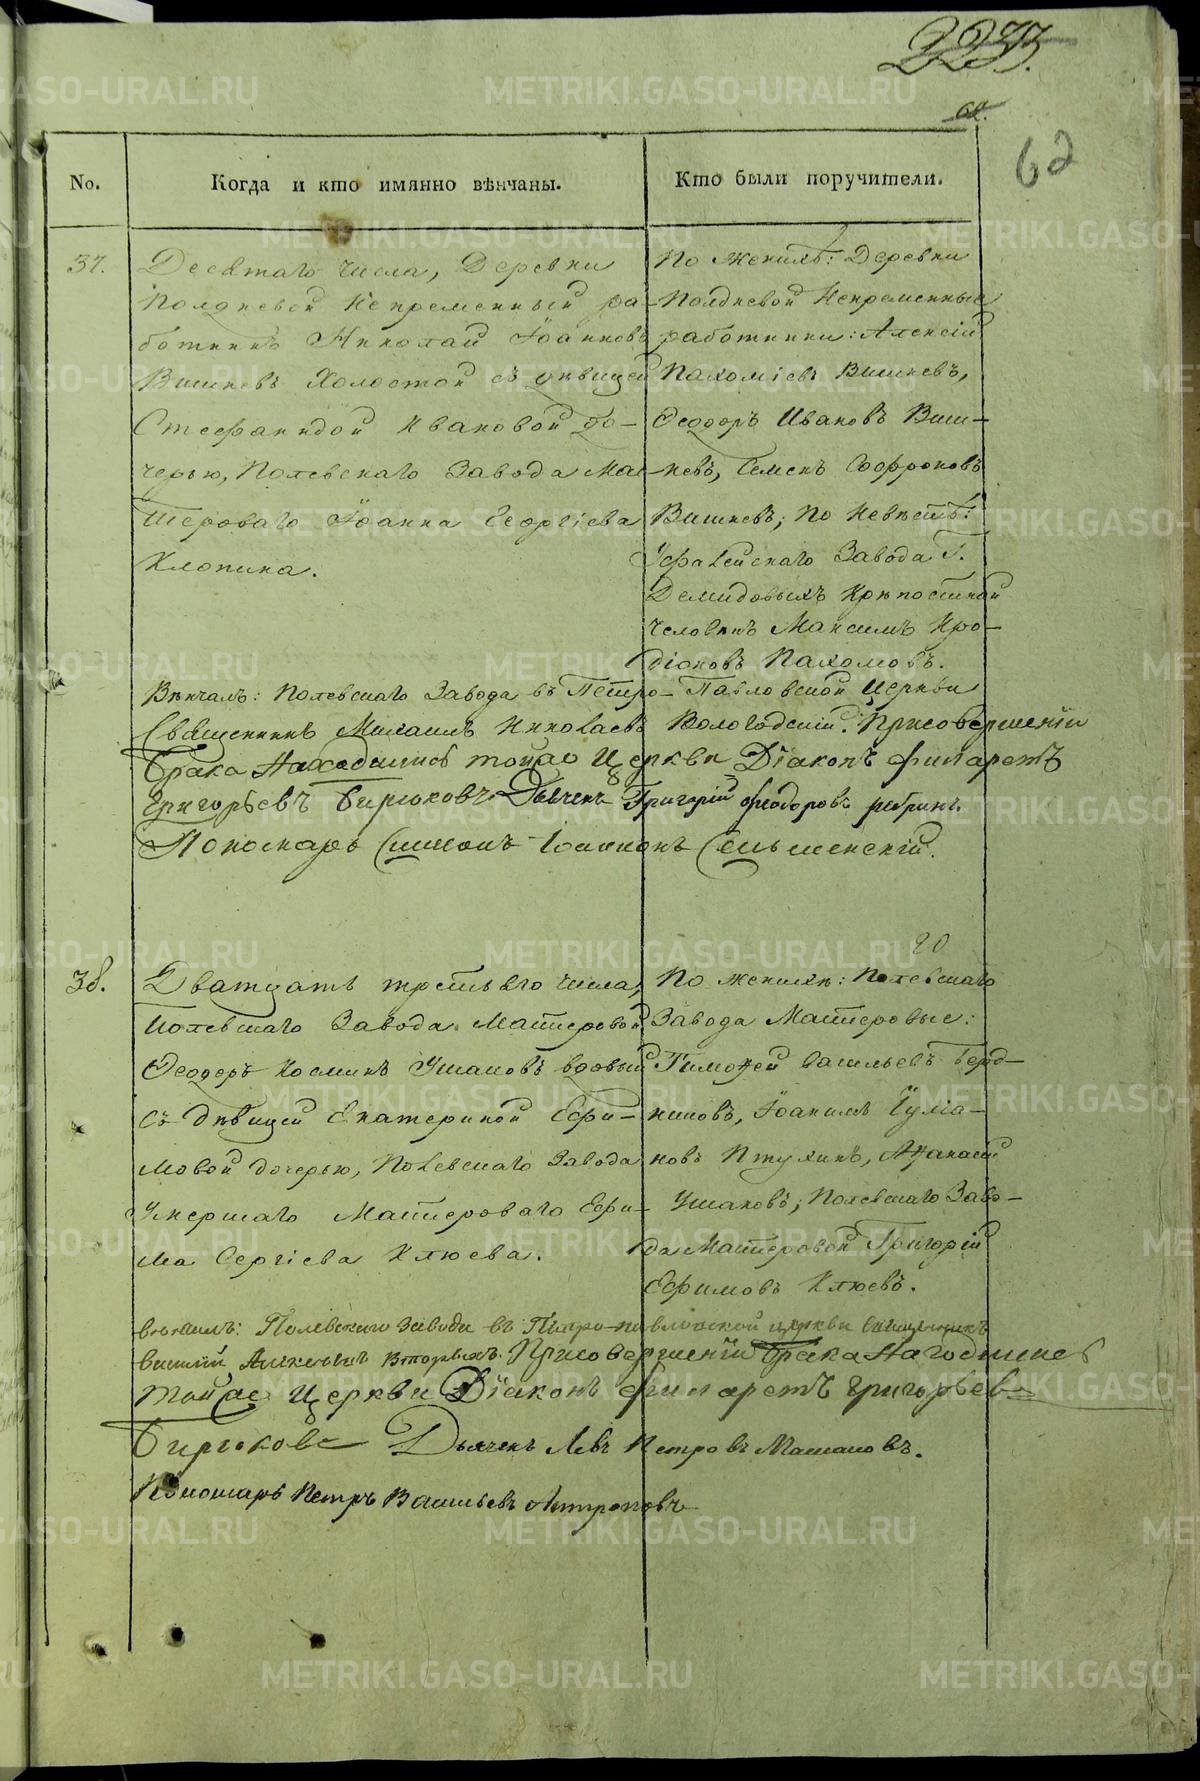 62
No.
Когда и кто имянно вѣнчаны.
Кто были поручители.
37.
Десятаго числа, Деревни
Полдневой Непременный ра-
ботникъ Николай Іоанновъ
Вишневъ Холостой съ дѣвицей
Стефанидой Ивановой до-
черью, Полевскаго Завода Мас-
тероваго Іоанна Георгіева
Клопина.
По женихѣ: Деревни
Полдневой Непременные
работники: Алексій
Пахоміевъ Вишневъ,
Ѳеодоръ Ивановъ Виш-
невъ, Семенъ Софроновъ
Вишневъ; По Невѣстѣ:
Уфалейскаго Завода Г.
Демидовыхъ Крѣпостной
человѣкъ Максимъ Иро-
діоновъ Пахомовъ.
Вѣнчалъ: Полевскаго Завода въ Петро-Павловской Церкви
Священникъ Михаилъ Николаевъ Вологодскій. Присовершеніи
брака Находились тойже Церкви Діаконъ Филаретъ
Григорьевъ Бирюковъ Дьячекъ Григорій Феодоровъ
Пономарь Симеонъ
38.
Дватцать третьяго числа,
Полевскаго Завода Мастеровой
Ѳеодоръ Косминъ Ушаковъ вдовый
съ дѣвицей Екатериной Ефи-
мовой дочерью, Полевскаго Завода
Умершаго Мастероваго Ефи-
ма Сергіева Клюева.
20
По женихѣ: Полевскаго
Завода Мастеровые:
Тимоѳей Васильевъ Берд-
никовъ, Іоакимъ Іуліа-
новъ Птухинъ, Аѳанасій
Ушаковъ; Полевскаго Заво-
да Мастеровой Григорій
Ефимовъ Клюевъ.
вѣнчалъ: Полевскаго Завода въ Петро-павловской церкви священникъ
Присовершеніи брака Находились
тойже Церкви Діаконъ Филаретъ Григорьевъ
Бирюковъ Дьячекъ Левъ Петровъ
Пономарь Петръ Васильевъ Антроповъ